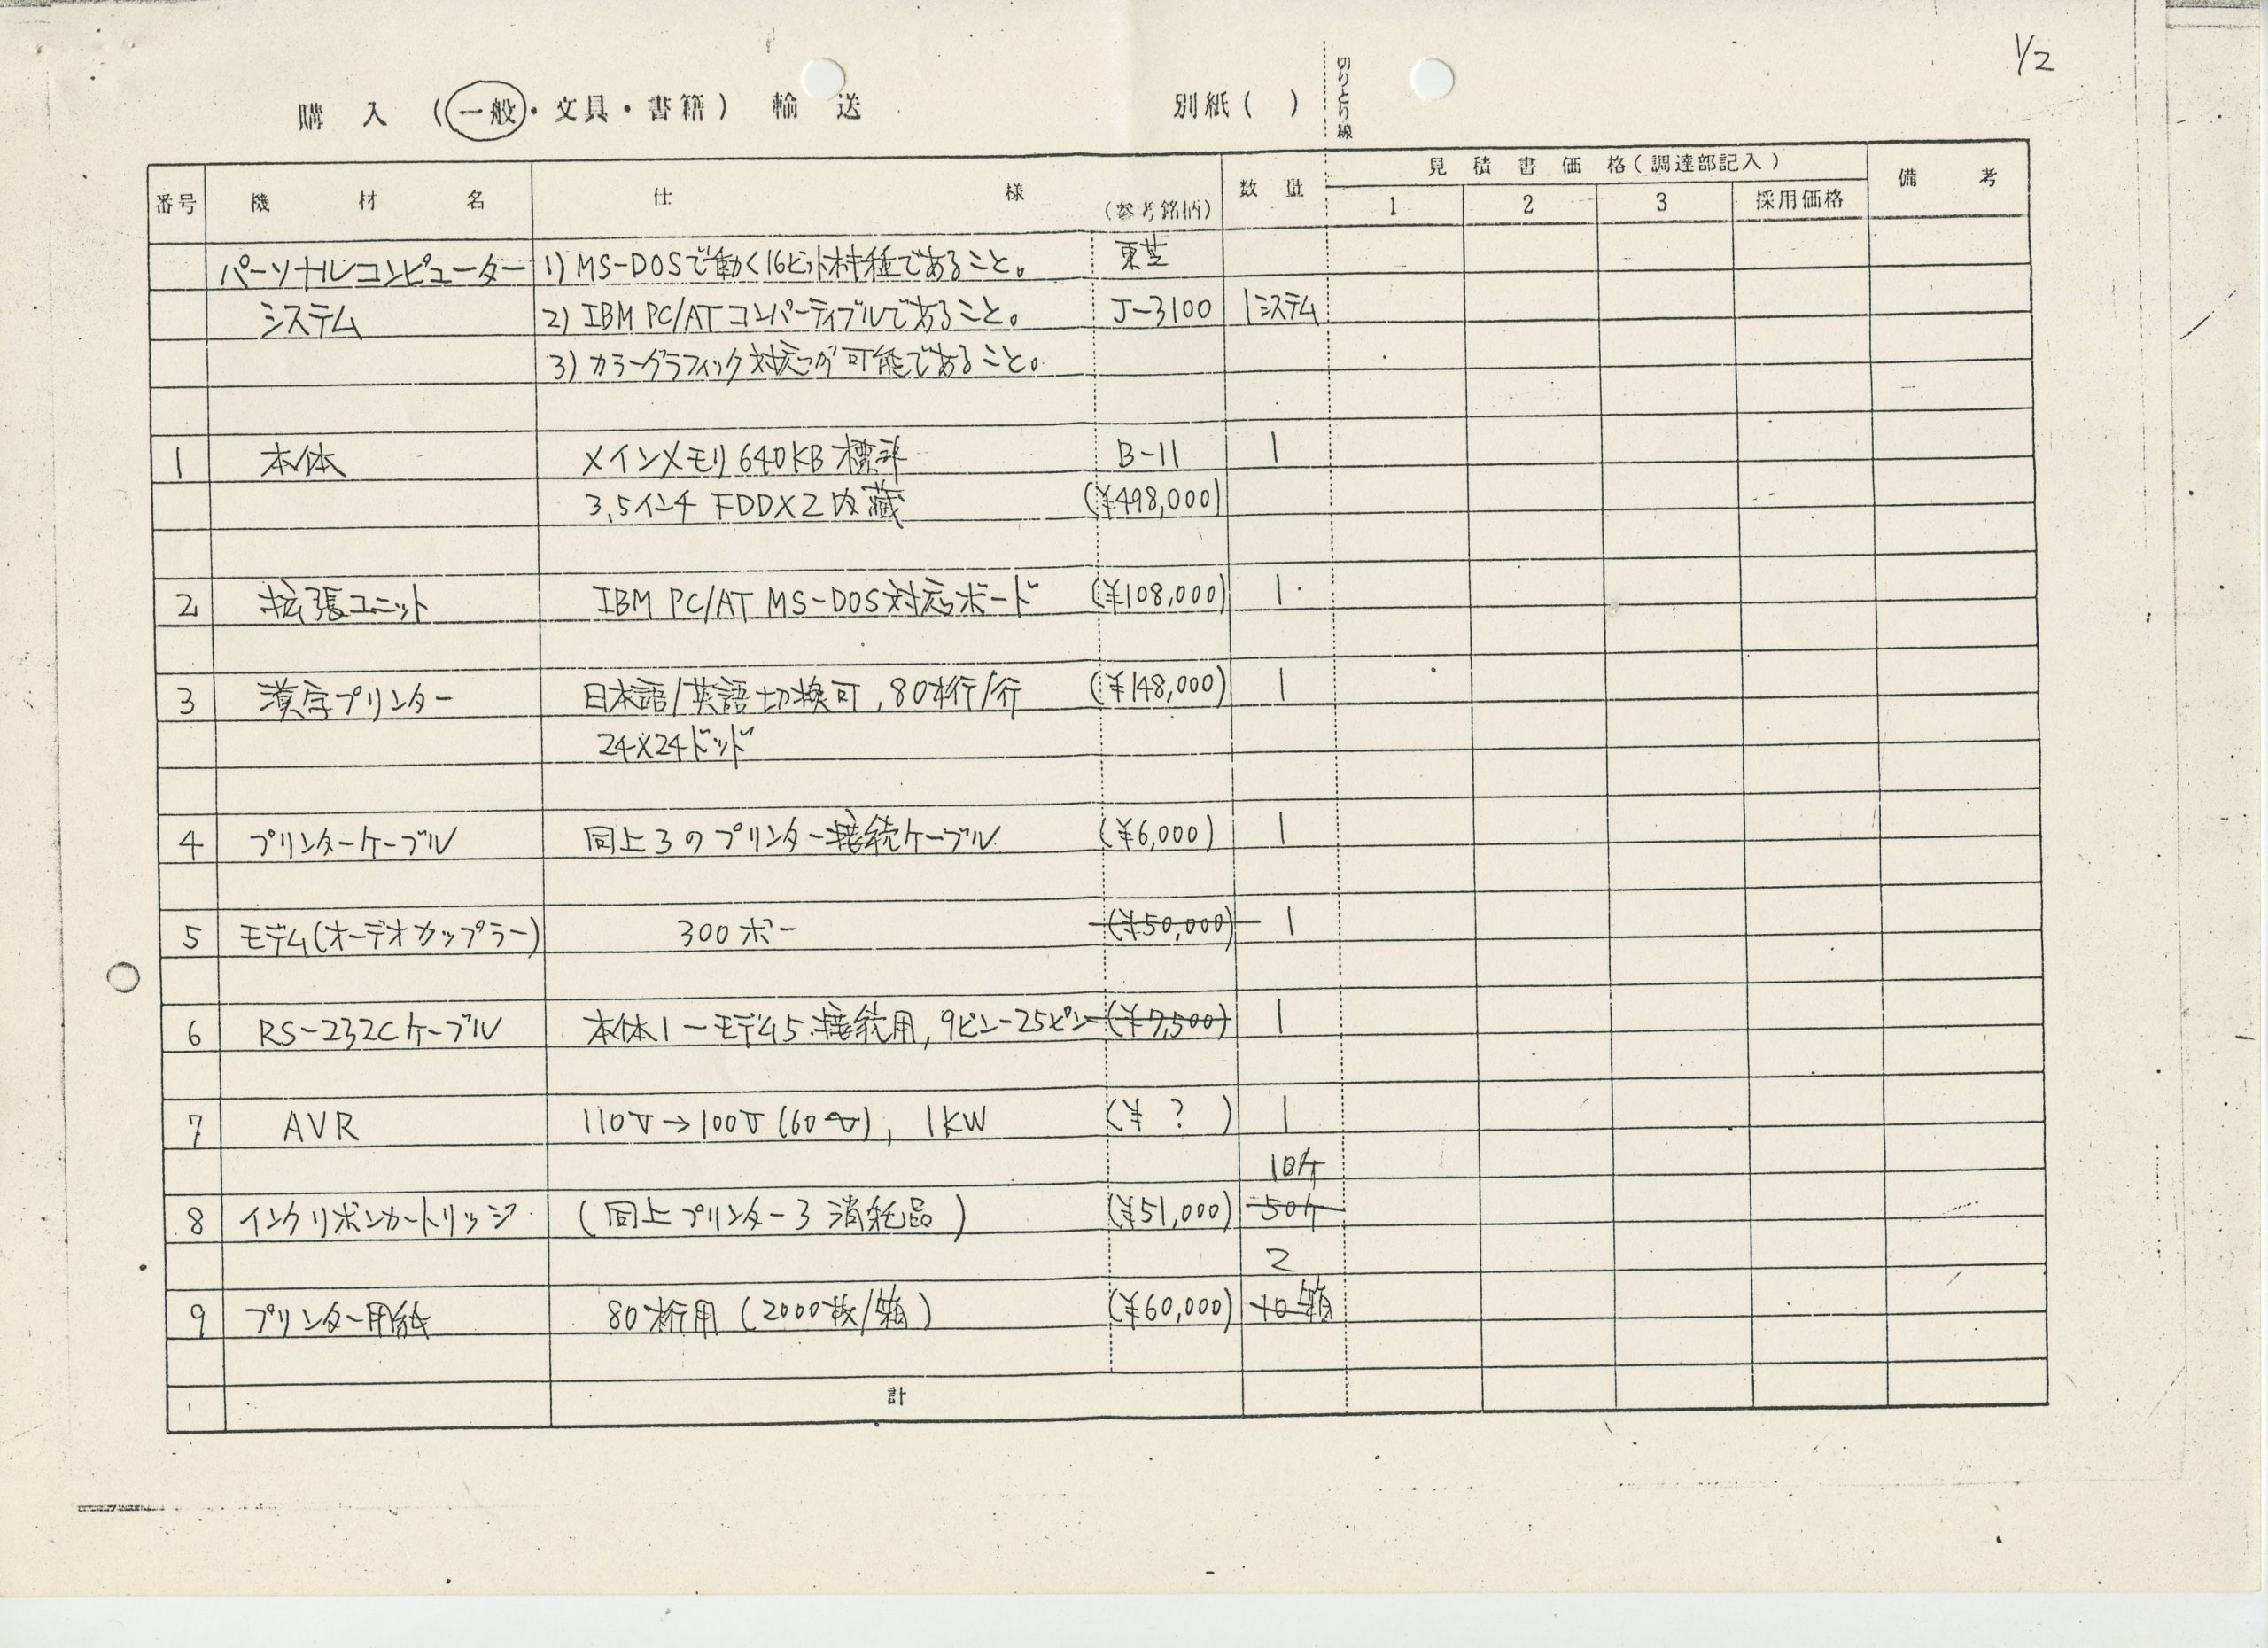 1/2
購入 (一般・文具・書籍) 輸送 別紙( ) 切りとり線
番号 機材名 仕様 (参考銘柄) 数量 見積書価格(調達部記入) 備考
1 2 3 採用価格
パーソナルコンピューター 1) MS-DOSで動く16ビット機種であること。 東芝
システム 2) IBM PC/AT コンパーティブルであること。 J-3100 1システム
3) カラーグラフィック対応が可能であること。
1 本体 メインメモリ 640KB 標準 B-11 1
3.5インチ FDDX2 内蔵 (¥498,000)
2 拡張ユニット IBM PC/AT MS-DOS対応ボード (¥108,000) 1
3 漢字プリンター 日本語/英語切換可, 80桁/行 (¥148,000) 1
24X24ドッド
4 プリンターケーブル 同上3のプリンター接続ケーブル (¥6,000) 1
5 モデム(オーデオカップラー) 300ボー (¥50,000) 1
6 RS-232Cケーブル 本体1-モデム5接続用, 9ピン-25ピン (¥7,500) 1
7 AVR 110V→100V (60 ), 1KW (¥ ? ) 1
10ケ
8 インクリボンカートリッジ (同上プリンター3 消耗品) (¥51,000) 50ケ
2
9 プリンター用紙 80桁用 (2000枚/箱) (¥60,000) 10箱
計